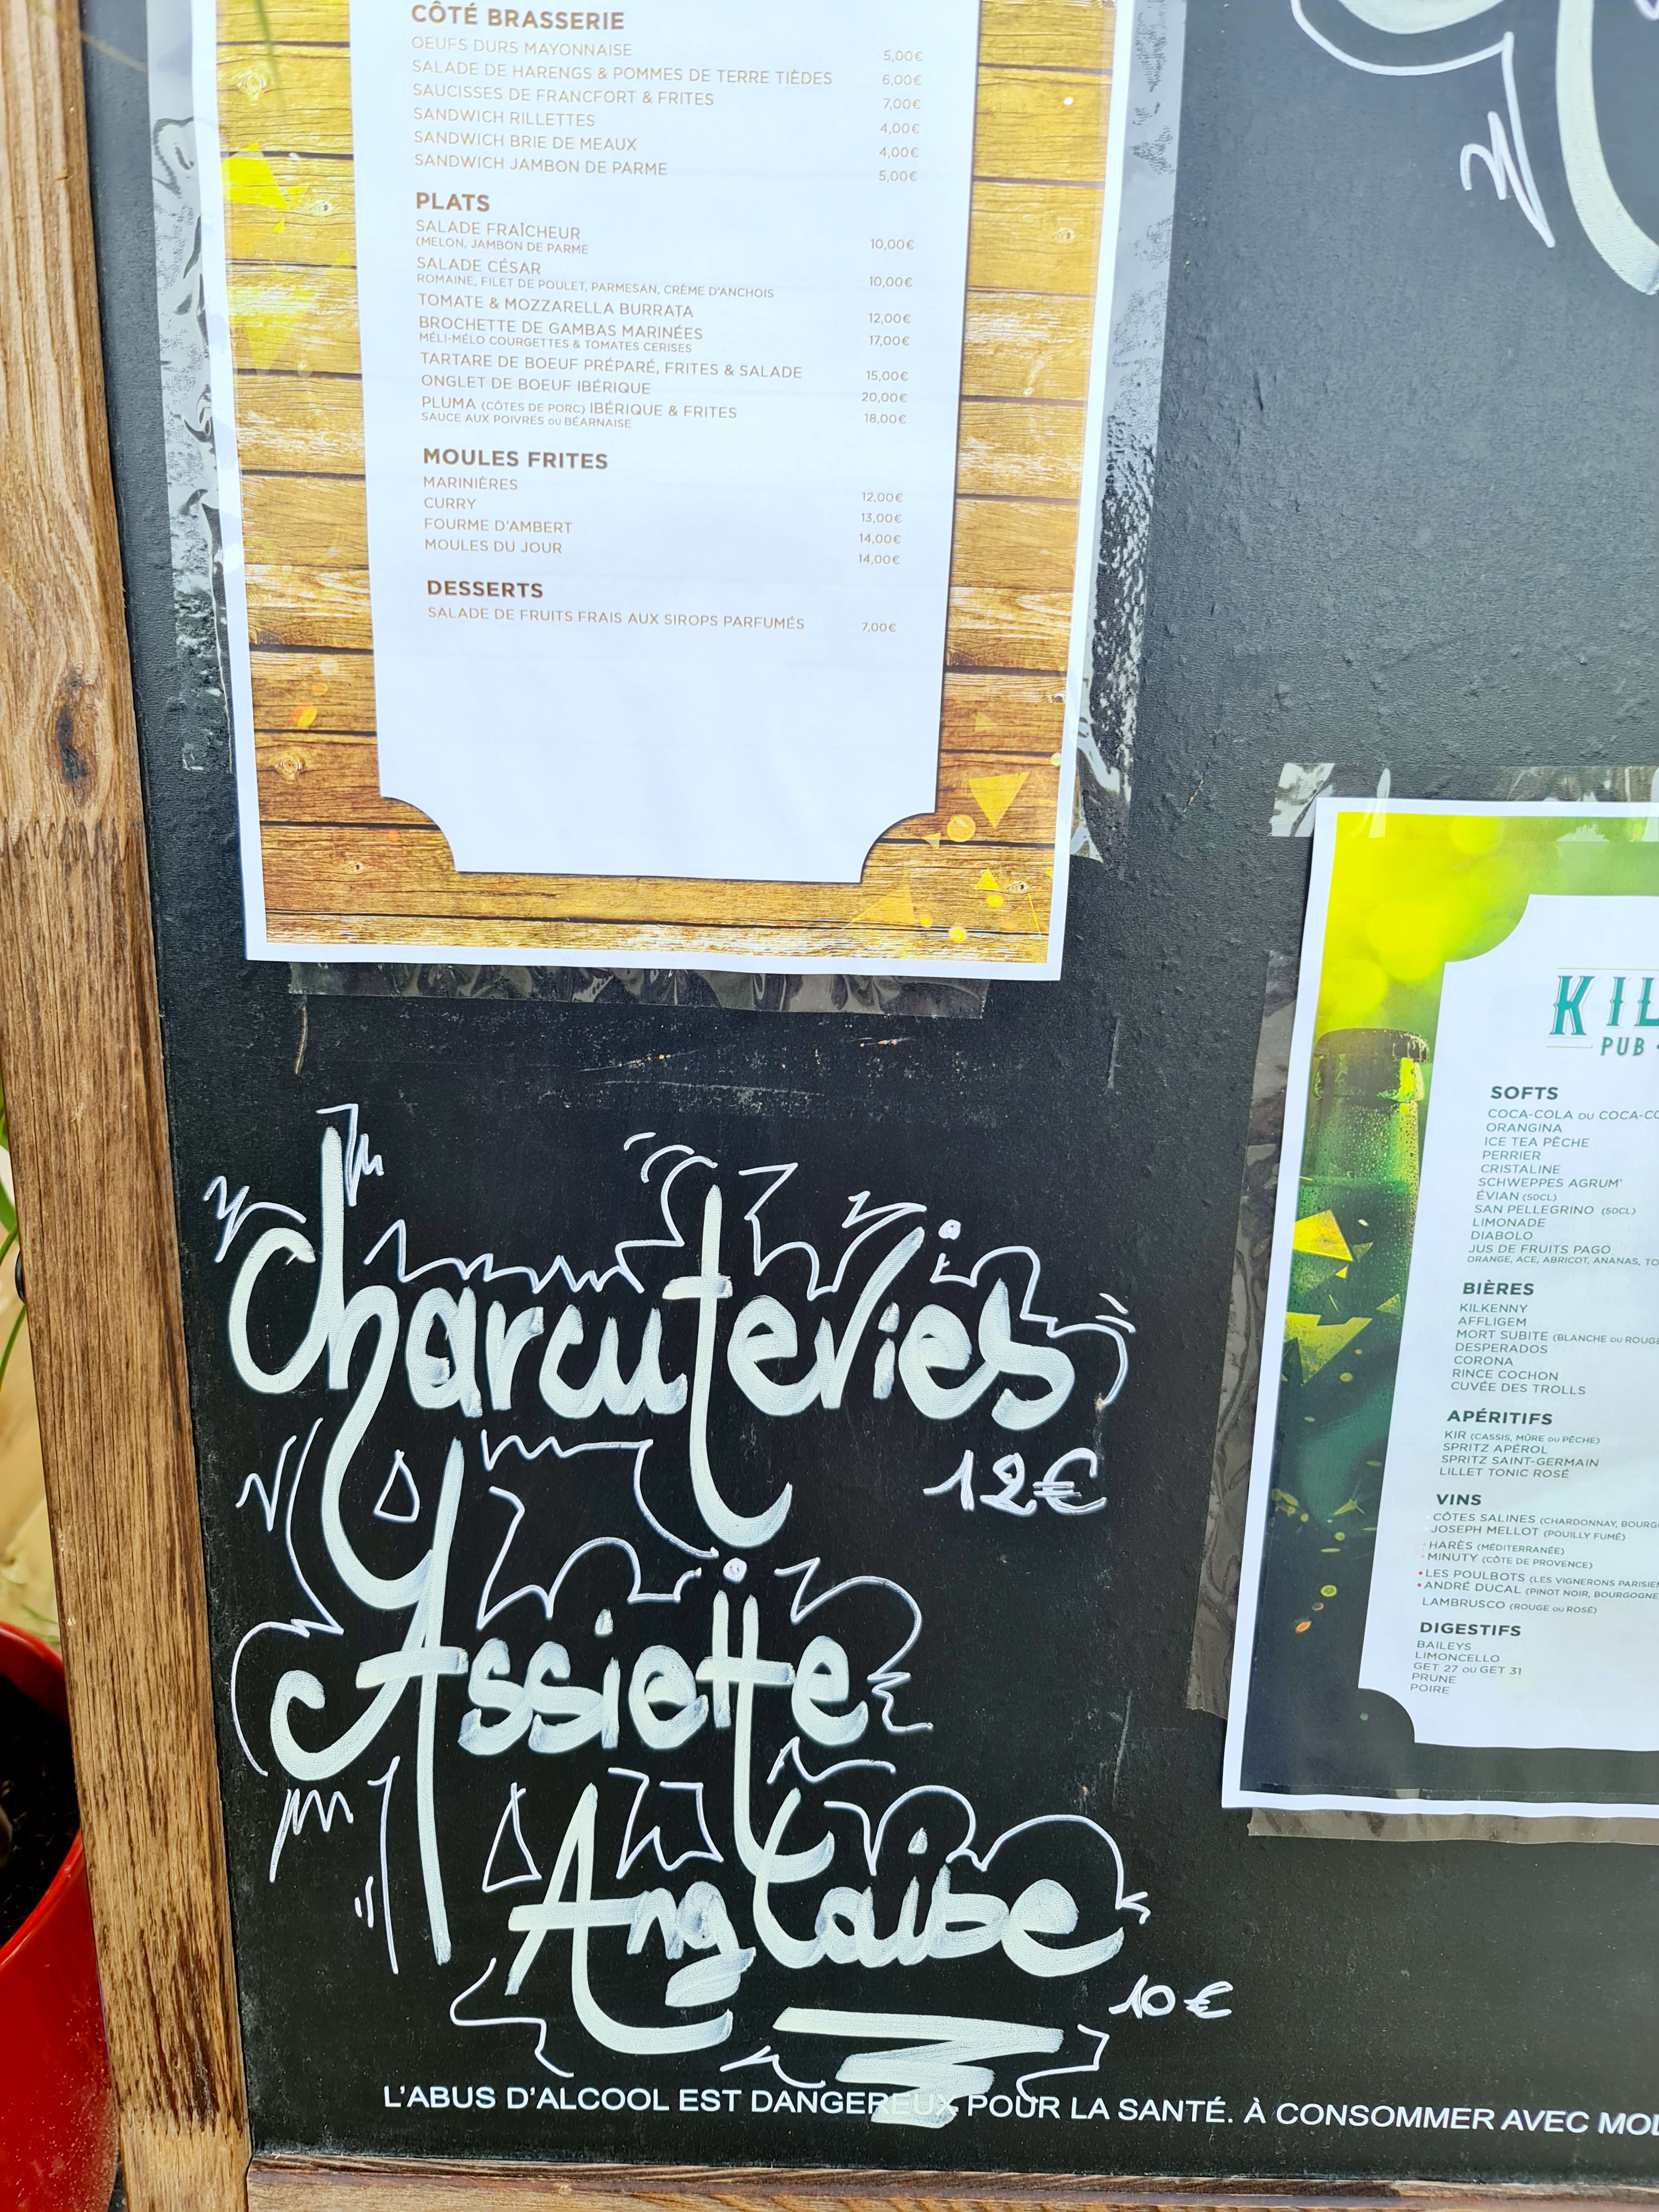 CÔTÉ BRASSERIE
OEUFS DURS MAYONNAISE 5,00€
SALADE DE HARENGS & POMMES DE TERRE TIÈDES 6,00€
SAUCISSES DE FRANCFORT & FRITES 7,00€
SANDWICH RILLETTES 4,00€
SANDWICH BRIE DE MEAUX 4,00€
SANDWICH JAMBON DE PARME 5,00€
PLATS
SALADE FRAÎCHEUR 10,00€
(MELON, JAMBON DE PARME
SALADE CÉSAR 10,00€
ROMAINE, FILET DE POULET, PARMESAN, CRÈME D'ANCHOIS
TOMATE & MOZZARELLA BURRATA 12,00€
BROCHETTE DE GAMBAS MARINÉES 17,00€
MÉLI-MÉLO COURGETTES & TOMATES CERISES
TARTARE DE BOEUF PRÉPARÉ, FRITES & SALADE 15,00€
ONGLET DE BOEUF IBÉRIQUE 20,00€
PLUMA (CÔTES DE PORC) IBÉRIQUE & FRITES 18,00€
SAUCE AUX POIVRES OU BÉARNAISE
MOULES FRITES
MARINIÈRES 12,00€
CURRY 13,00€
FOURME D'AMBERT 14,00€
MOULES DU JOUR 14,00€
DESSERTS
SALADE DE FRUITS FRAIS AUX SIROPS PARFUMÉS 7,00€
Charcuteries
12€
Assiette
Anglaise
10€
KIL
PUB
SOFTS
COCA-COLA OU COCA-CO
ORANGINA
ICE TEA PÊCHE
PERRIER
CRISTALINE
SCHWEPPES AGRUM'
ÉVIAN (50CL)
SAN PELLEGRINO (50CL)
LIMONADE
DIABOLO
JUS DE FRUITS PAGO
ORANGE, ACE, ABRICOT, ANANAS, TO
BIÈRES
KILKENNY
AFFLIGEM
MORT SUBITE (BLANCHE OU ROUGE
DESPERADOS
CORONA
RINCE COCHON
CUVÉE DES TROLLS
APÉRITIFS
KIR (CASSIS, MÛRE OU PÊCHE)
SPRITZ APÉROL
SPRITZ SAINT-GERMAIN
LILLET TONIC ROSÉ
VINS
CÔTES SALINES (CHARDONNAY, BOURGO
JOSEPH MELLOT (POUILLY FUMÉ)
HARÈS (MÉDITERRANÉE)
MINUTY (CÔTE DE PROVENCE)
LES POULBOTS (LES VIGNERONS PARISIEN
ANDRÉ DUCAL (PINOT NOIR, BOURGOGNE
LAMBRUSCO (ROUGE OU ROSÉ)
DIGESTIFS
BAILEYS
LIMONCELLO
GET 27 OU GET 31
PRUNE
POIRE
L'ABUS D'ALCOOL EST DANGEREUX POUR LA SANTÉ. À CONSOMMER AVEC MOD